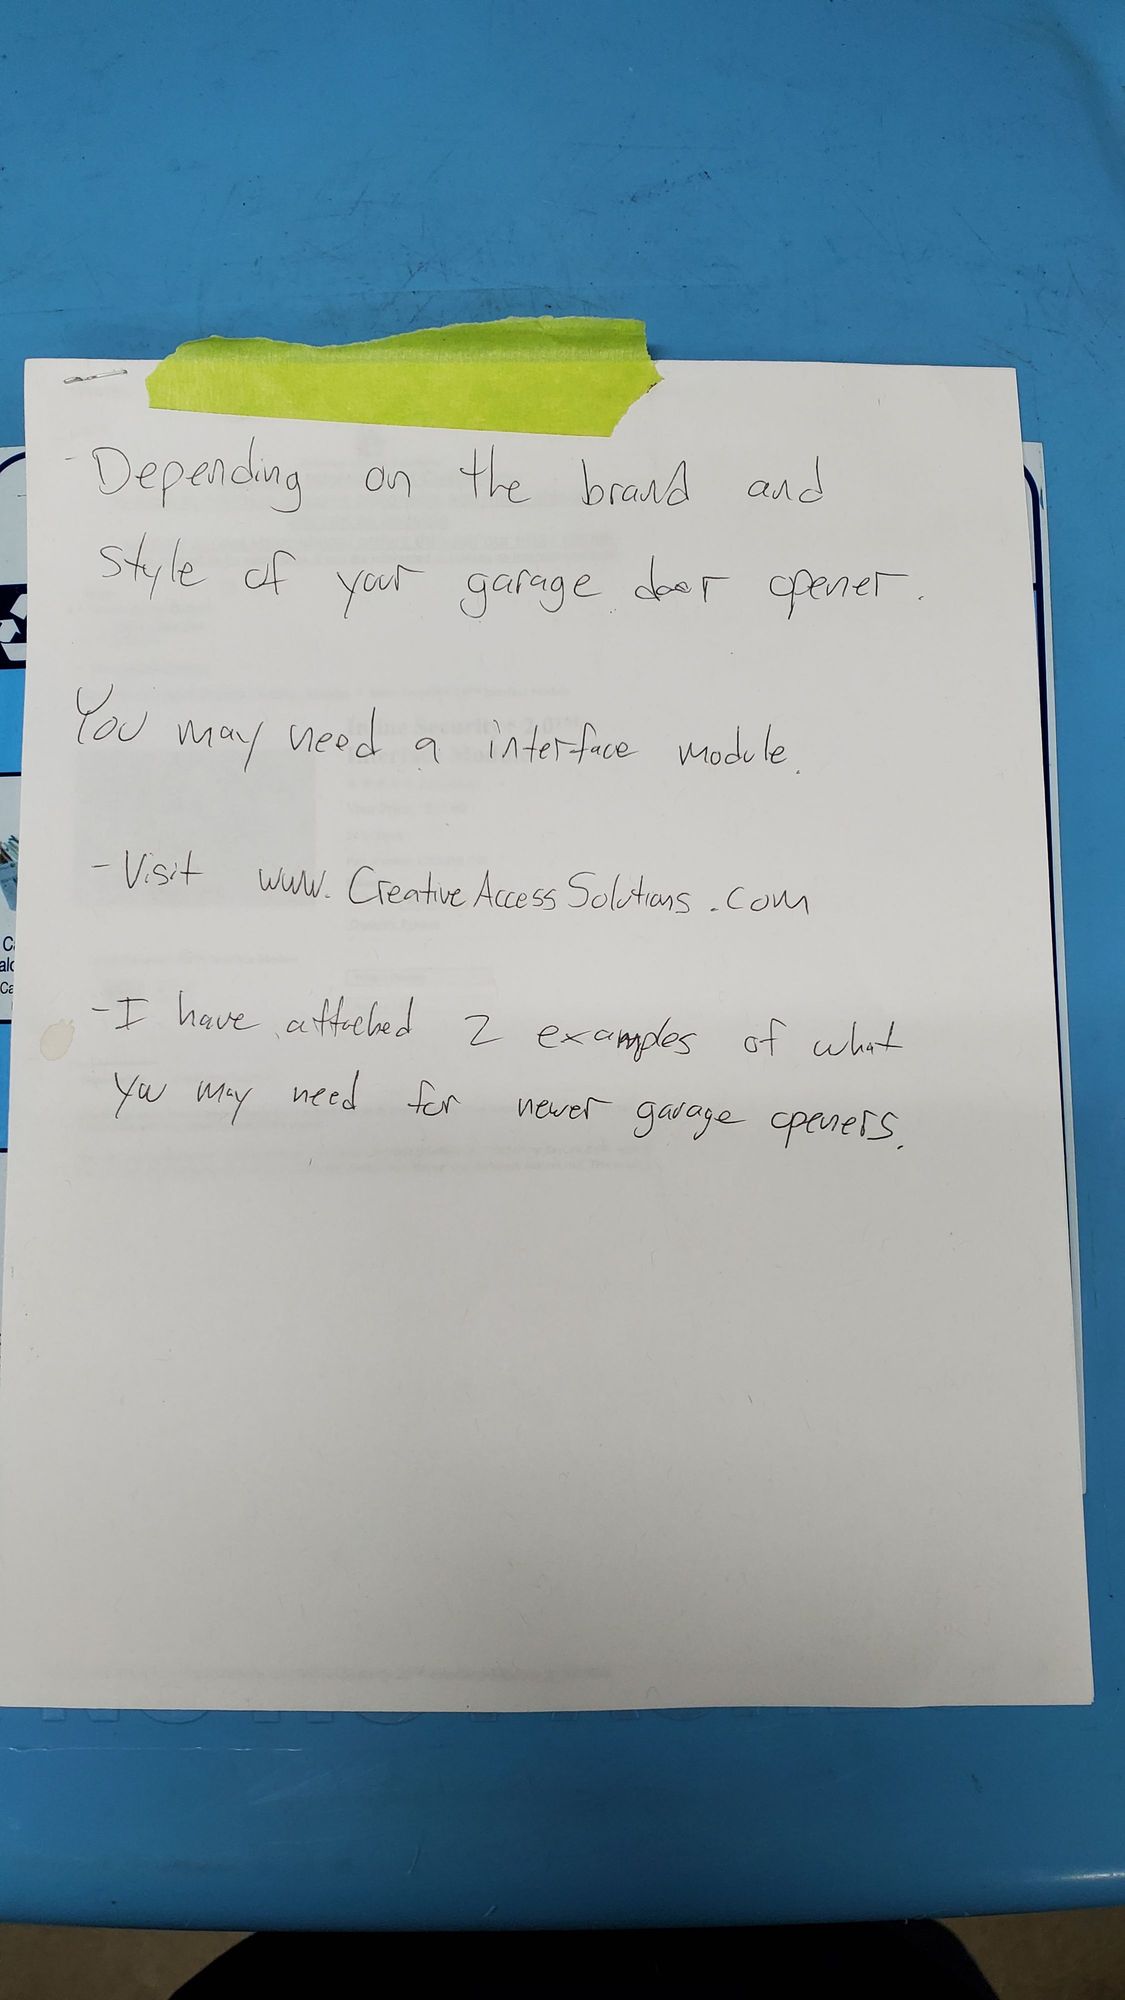 - Depending on the brand and
style of your garage door opener.
You may need a interface module.
- Visit www.CreativeAccessSolutions.com
- I have attached 2 examples of what
you may need for newer garage openers.